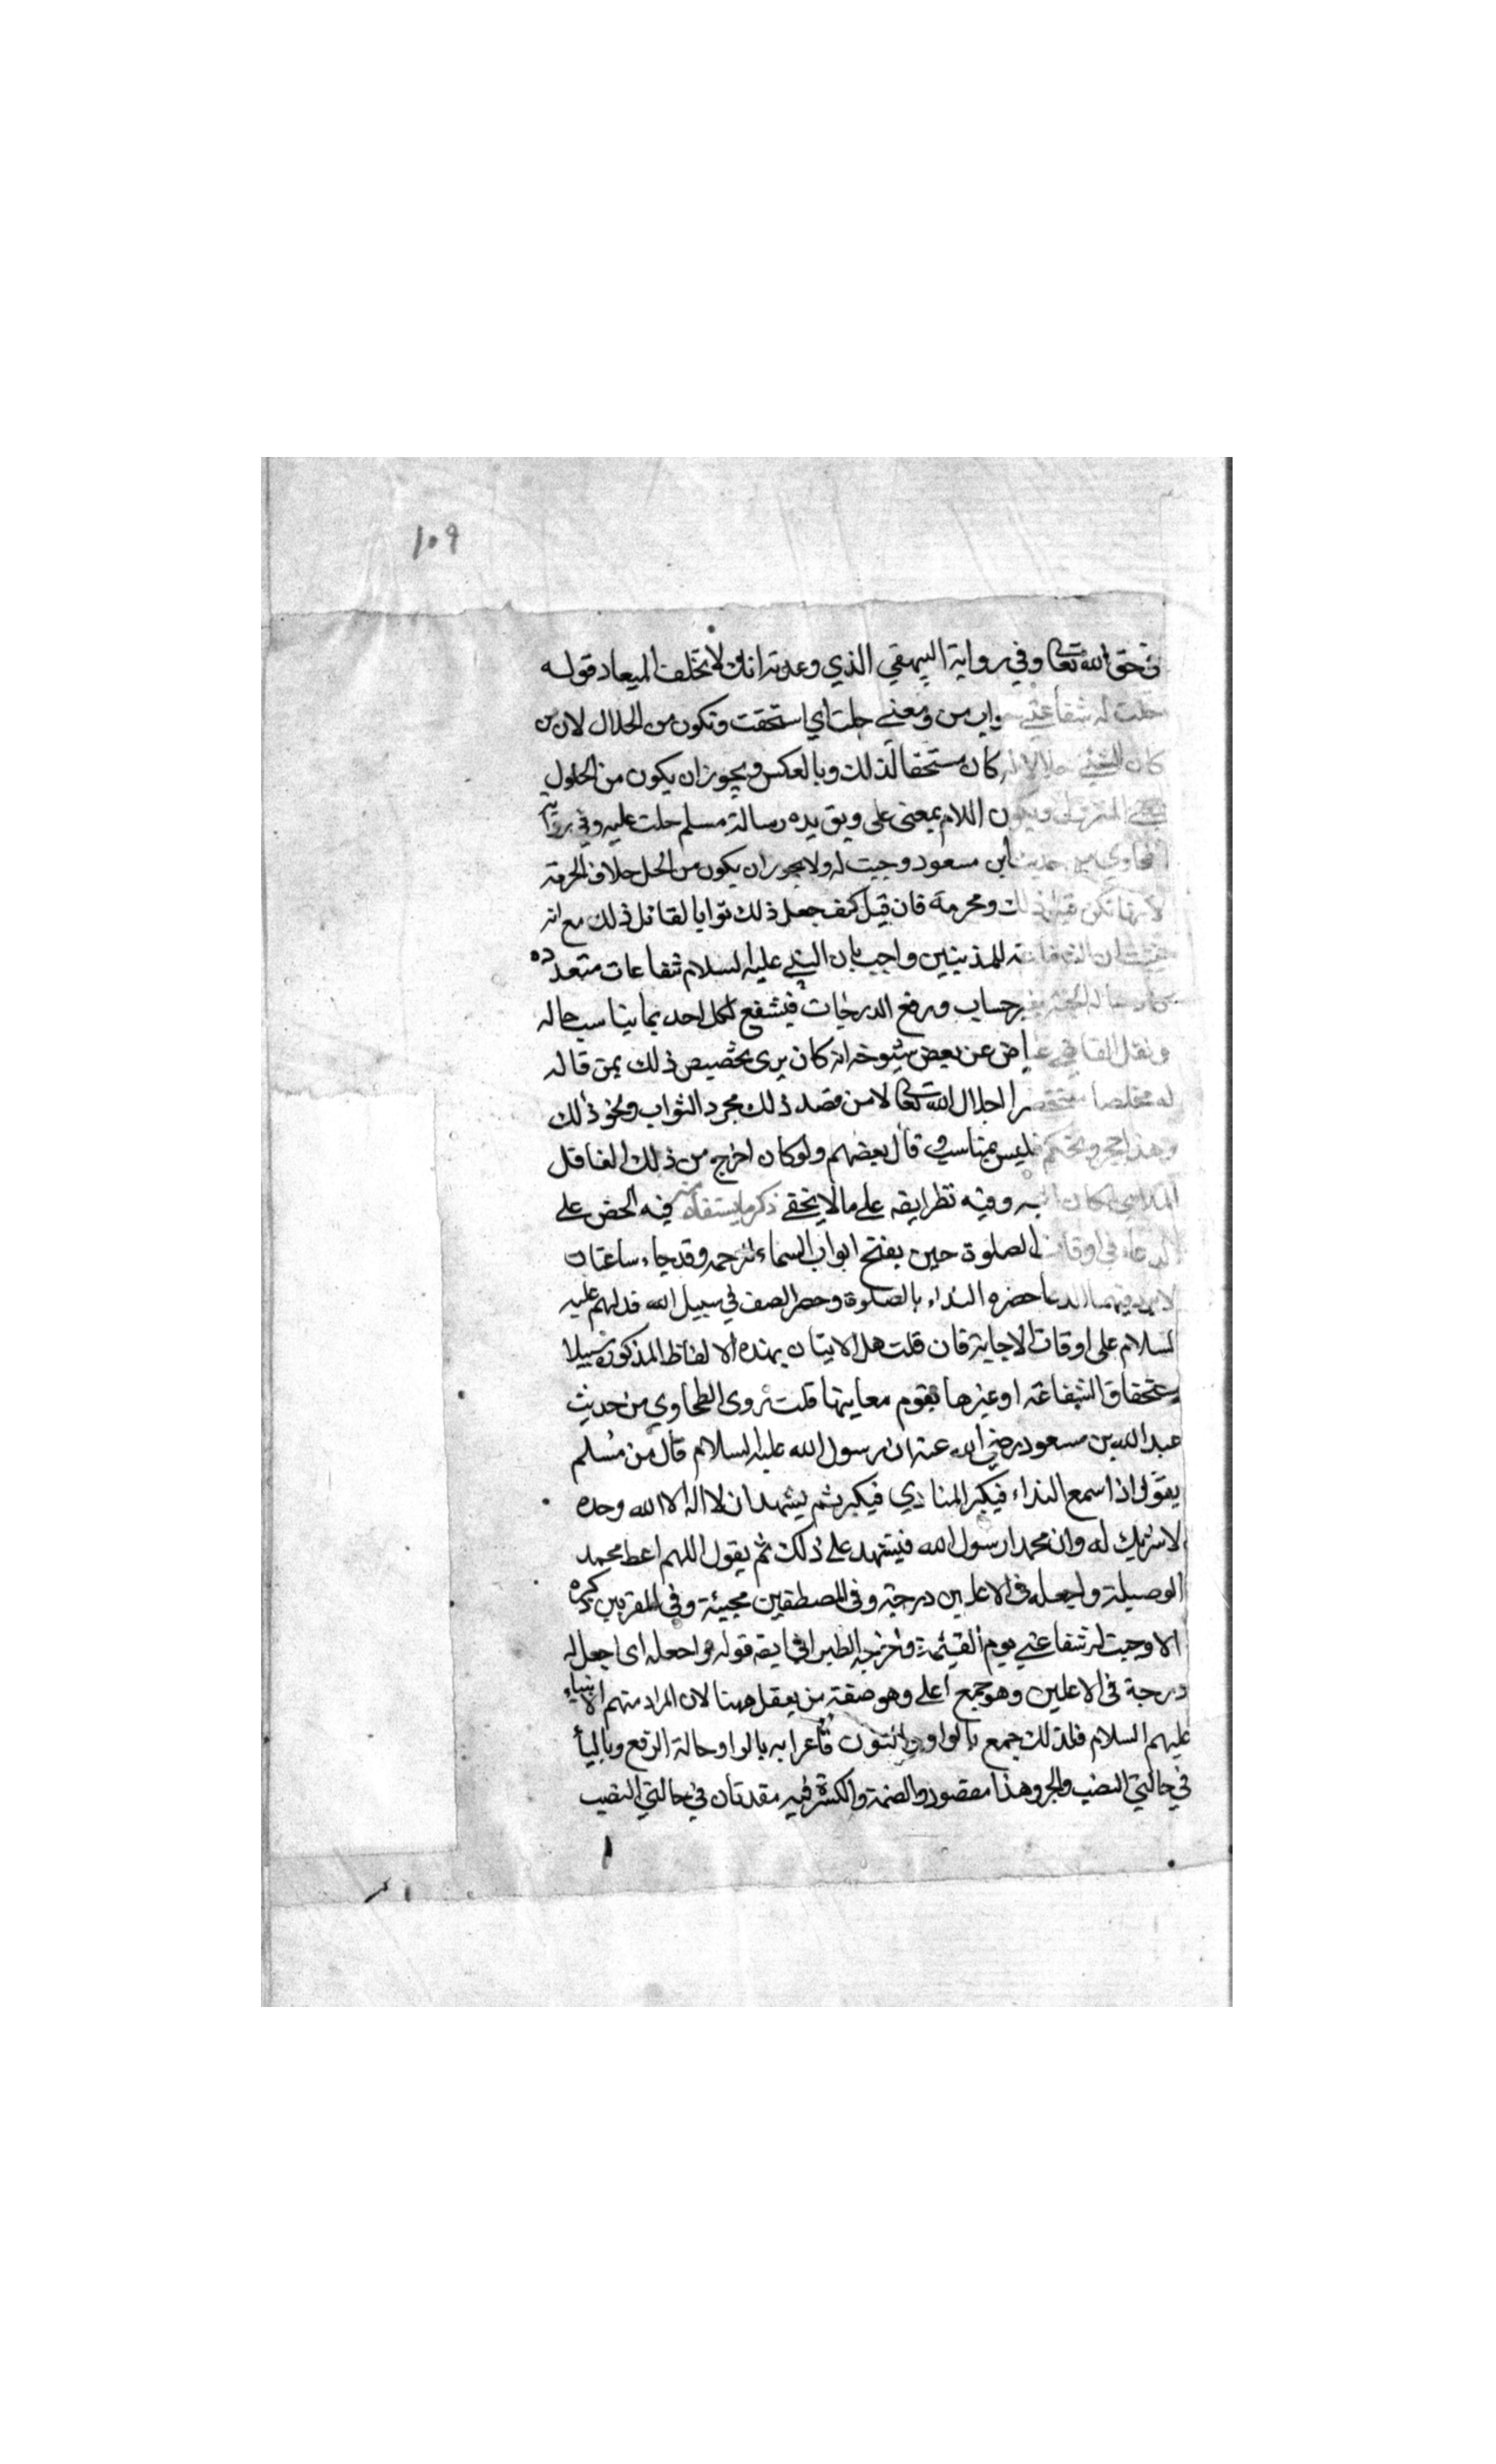 ١٠٩
في حق الله تعالى وفي رواية البيهقي الذي وعدته انك لا تخلف الميعاد قوله
حلت له شفاعتي جواب من ومعني حلت اي استحقت وتكون من الحلال لان من
كان الشيئ حلالا له كان مستحقا لذلك وبالعكس ويجوز ان يكون من الحلول
ويكون اللام بمعنى على ويؤيده رسالة مسلم حلت عليه وفي رواية
الطحاوي من حديث ابن مسعود وجبت له ولا يجوز ان يكون من الحل خلاف الحرمة
لانها تكن قبل ذلك ومحرمة فان قيل كيف جعل ذلك ثوابا لقائل ذلك مع انه
للمذنبين واجيب بان النبي عليه السلام شفاعات متعدده
بغير حساب ورفع الدرجات فيشفع لكل احد بما يناسب حاله
ونقل القاضي عياض عن بعض شيوخه انه كان يرى تخصيص ذلك بمن قاله
له مخلصا مستحضرا اجلال الله تعالى لا من قصد ذلك مجرد الثواب ونحو ذلك
وهذا تحجر وتحكم فليس بمناسب وقال بعضهم ولو كان اخرج من ذلك الغافل
اللاهي لكان اشبه وفيه نظر ايضه على ما لا يخفى ذكر ما يستفاد منه فيه الحض على
الدعاء في اوقات الصلوة حين يفتح ابواب السماء للرحمه وقد جاء ساعتان
لا يرد فيهما الدعا حضره النداء بالصلوة وحضر الصف في سبيل الله فدلهم عليه
السلام على اوقات الاجابة فان قلت هل الاتيان بهذه الالفاظ المذكورة سببلا
ستحقاق الشفاعة او غيرها يقوم معاينها قلت روى الطحاوي من حديث
عبد الله بن مسعود رضي الله عنه ان رسول الله عليه السلام قال من مسلم
يقول اذا سمع النداء فيكبر المنادي فيكبر ثم يشهد ان لا اله الا الله وحده
لا شريك له وان محمدا رسول الله فيشهد على ذلك ثم يقول اللهم اعط محمد
الوصيلة واجعله في الاعلين درجته وفي المصطفين محبيته وفي المقربين ذكره
الا وجبت له شفاعتي يوم القيٰمة واخرجه الطبراني ايضه قوله واجعله اى اجعل له
درجة في الاعلين وهو جمع اعلى وهو صفة من يعقل ههنا لان المراد منهم الانبياء
عليهم السلام فلذلك جمع بالواو والنون فأعرابه بالواو حالة الرفع وبالياء
في حالتي النصب والجر وهذا مقصور والضمة والكسرة فيه مقدرتان في حالتي النصب